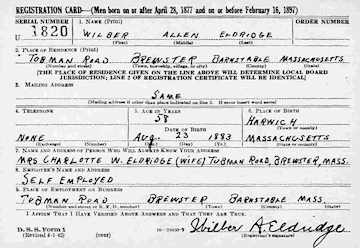 REGISTRATION CARD—(Men born on or after April 28, 1877 and on or before February 16, 1897)
SERIAL NUMBER 1. NAME (Print) ORDER NUMBER
U 1820 WILBER ALLEN ELDRIDGE
(First) (Middle) (Last)
2. PLACE OF RESIDENCE (Print)
TUBMAN ROAD BREWSTER BARNSTABLE MASSACHUSETTS
(Number and street) (Town, township, village, or city) (County) (State)
[THE PLACE OF RESIDENCE GIVEN ON THE LINE ABOVE WILL DETERMINE LOCAL BOARD
JURISDICTION; LINE 2 OF REGISTRATION CERTIFICATE WILL BE IDENTICAL]
3. MAILING ADDRESS
SAME
[Mailing address if other than place indicated on line 2. If same insert word same]
4. TELEPHONE 5. AGE IN YEARS 6. PLACE OF BIRTH
58 HARWICH
DATE OF BIRTH (Town or county)
NONE AUG. 23 1883 MASSACHUSETTS
(Exchange) (Number) (Mo.) (Day) (Yr.) (State or country)
7. NAME AND ADDRESS OF PERSON WHO WILL ALWAYS KNOW YOUR ADDRESS
MRS CHARLOTTE W. ELDRIDGE (WIFE) TUBMAN ROAD, BREWSTER, MASS.
8. EMPLOYER'S NAME AND ADDRESS
SELF EMPLOYED
9. PLACE OF EMPLOYMENT OR BUSINESS
TUBMAN ROAD BREWSTER BARNSTABLE MASS.
(Number and street or R. F. D. number) (Town) (County) (State)
I AFFIRM THAT I HAVE VERIFIED ABOVE ANSWERS AND THAT THEY ARE TRUE.
D. S. S. Form 1
(Revised 4-1-42) (over) Wilber A. Eldridge
(Registrant's signature)